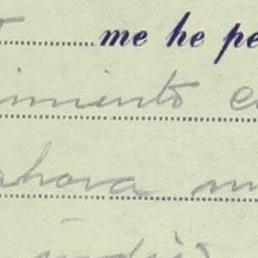 me he pe
imiento e
ahora m